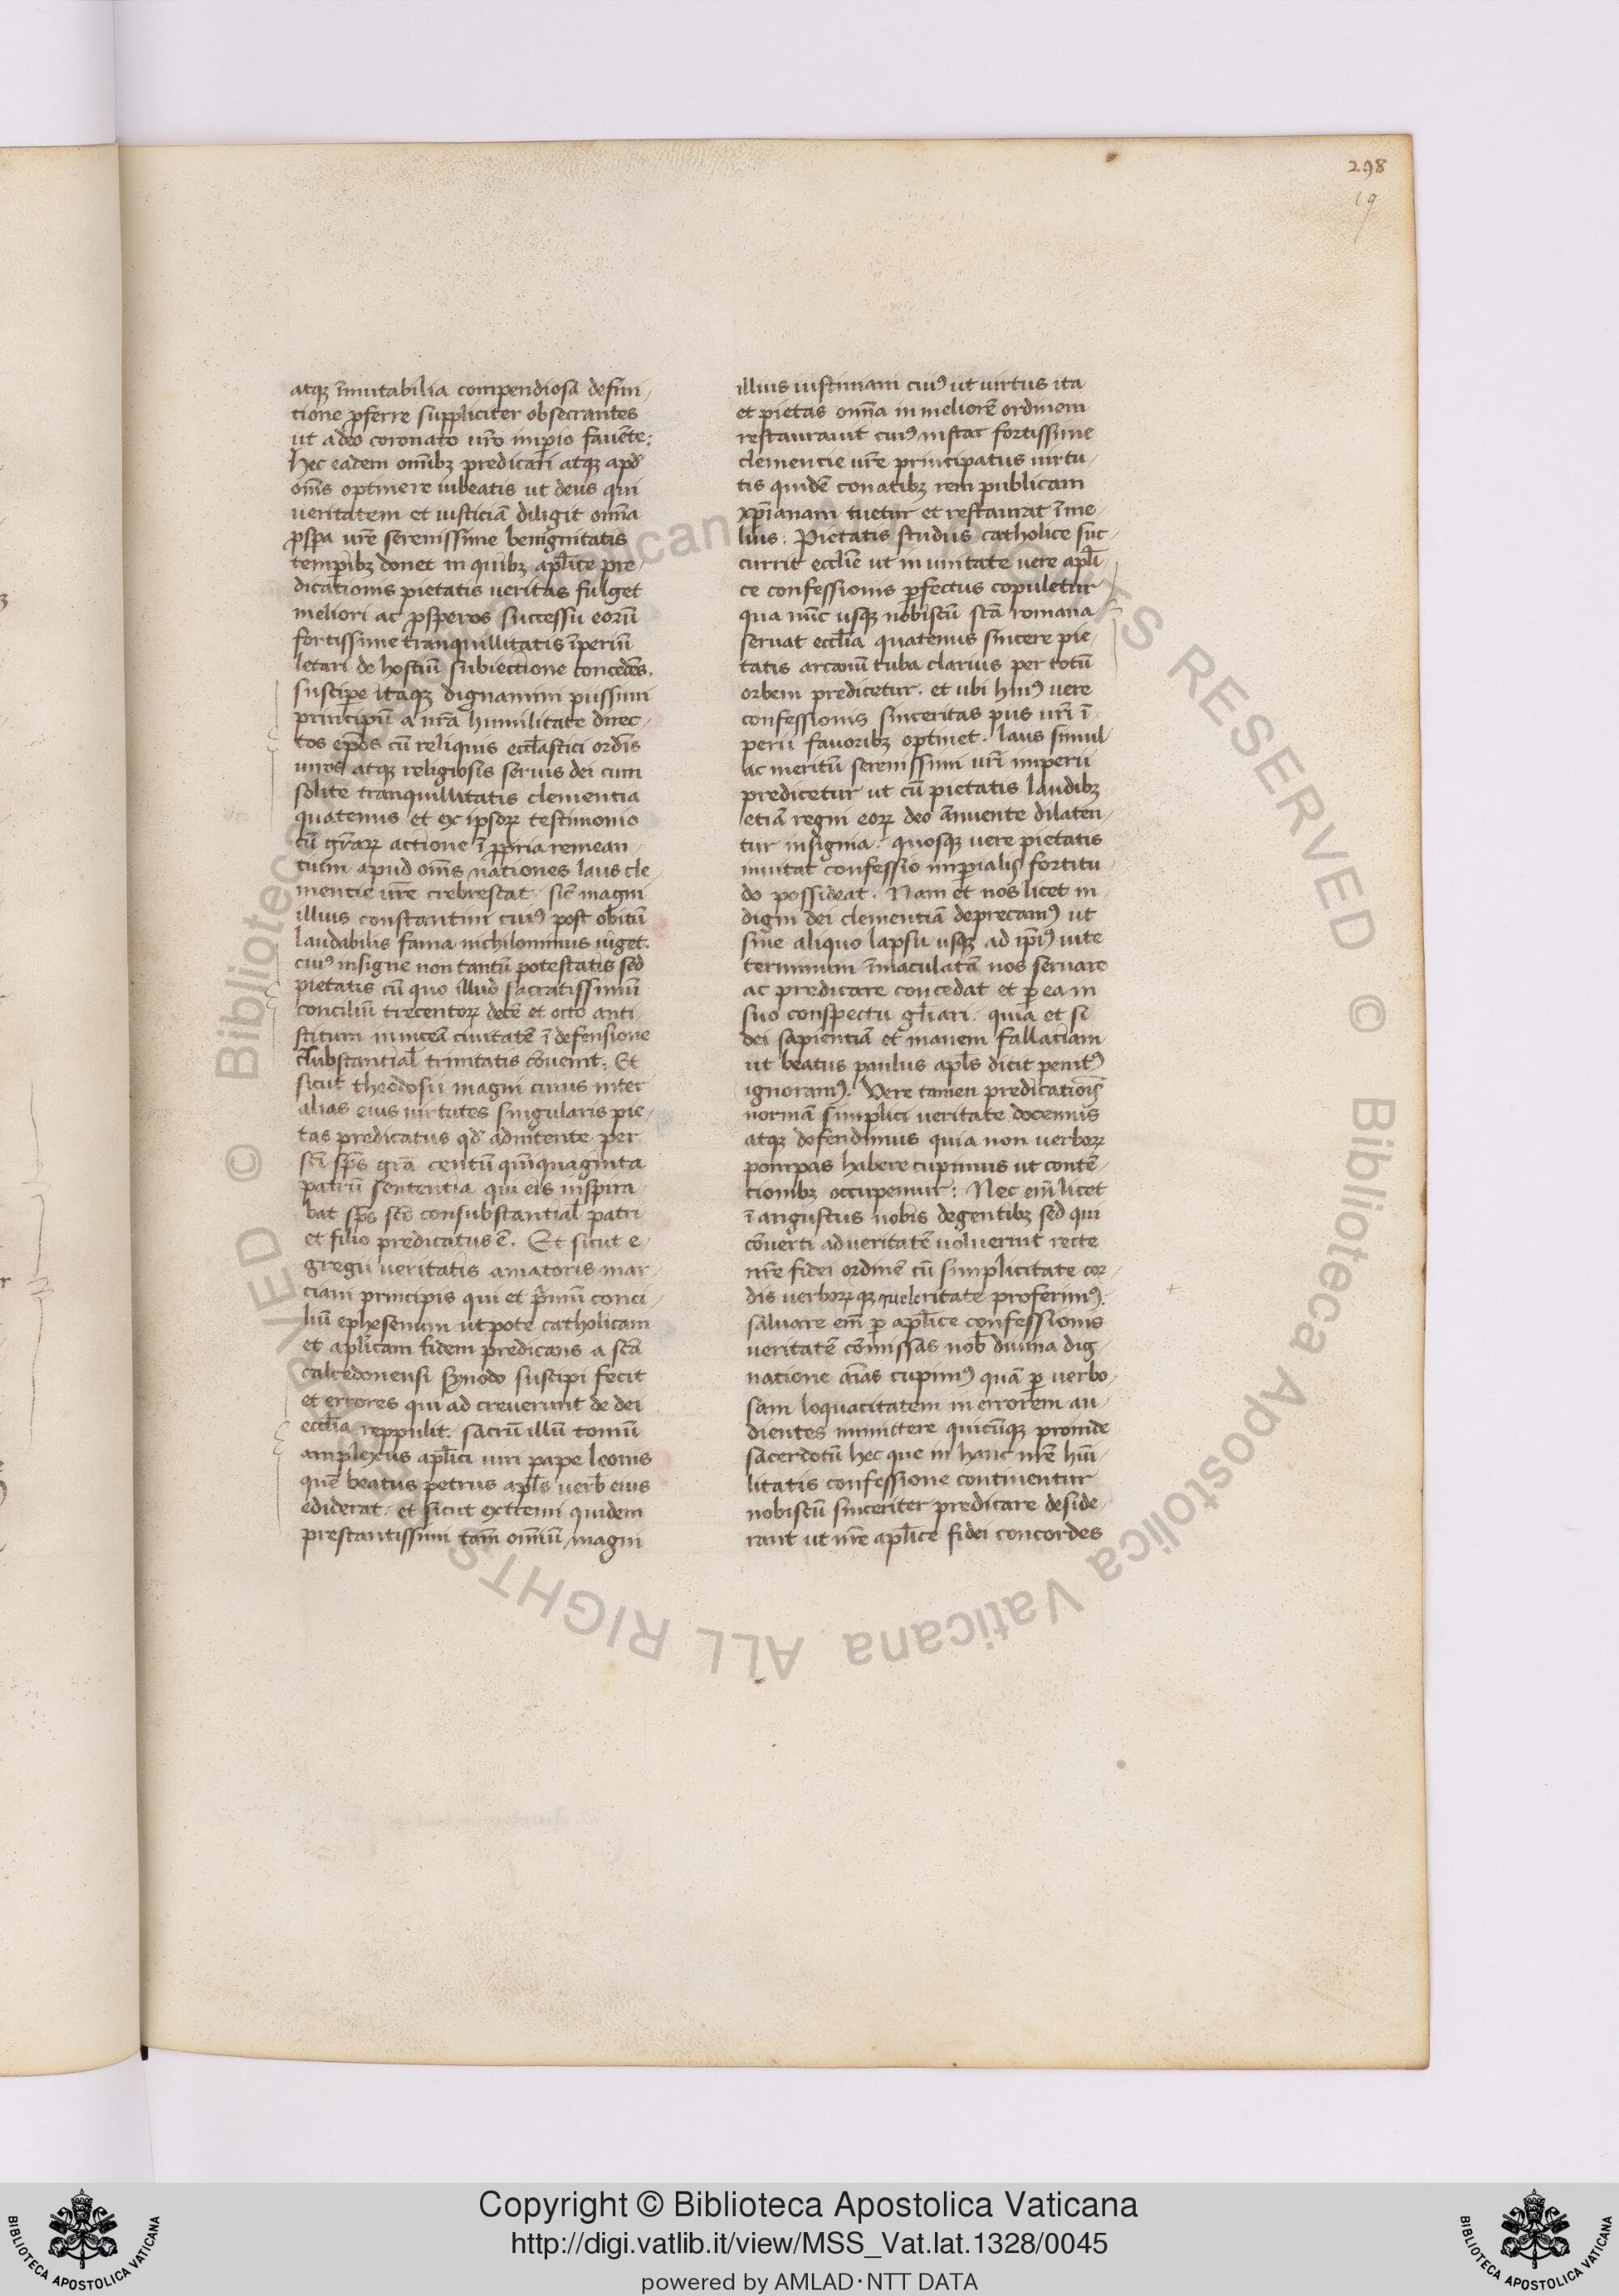 298
19
atqꝫ īmutabilia compendiosa defini
tione ꝓferre suppliciter obsecrantes
ut adeo coronato vr̄o imꝑio favēte:
hec eadem omībꝫ predicari atqꝫ apd̄
om̄s optinere iubeatis ut deus qui
veritatem et iusticiā diligit omīa
ꝓspa vr̄e serenissime benignitatis
tempibꝫ donet in quibꝫ apl̄ice pre
dicationis pietatis veritas fulget
meliori ac ꝓsperos successu eorū
fortissime tranquillitatis īperiū
letari de hostiū subiectione concedēs.
suscipe itaqꝫ dignamini piissimi
principū a nr̄a humilitate direc
tos ep̄os cū reliquis eccl̄astici ordis
viros atqꝫ religiosis servis dei cum
solite tranquillitatis clementia
quatenus et ex ipsoꝝ testimonio
cū gr̄aꝝ actione ī ꝓpria remean
tium apud om̄s nationes laus cle
mentie vr̄e crebrescat. sic magni
illius constantini cuiꝰ post obitū
laudabilis fama nichilominus viget.
cuiꝰ insigne non tantū potestatis sed
pietatis cū quo illud sacratissimū
conciliū trecentoꝝ decē et octo anti
stitum in niceā civitatē ī defensione
9substantial̄ trinitatis cōvenit. Et
sicut theodosii magni cuius inter
alias eius virtutes singularis pie
tas predicatus qd̄ adnitente per
sc̄i sp̄s gr̄a centū quīquaginta
patrū sententia qui eis inspira
bat sp̄s sc̄s consubstantial̄ patri
et filio predicatus ē. Et sicut e
gregii veritatis amatoris mar
ciani principis qui et p̄mū conci
liū ephesenum utpote catholicam
et apl̄icam fidem predicans a sc̄a
calcedonensi synodo suscipi fecit
et errores qui ad creverunt de dei
eccl̄ia reppulit. sacrū illū tomū
amplexus apl̄ici viri pape leonis
quē beatus petrus apl̄s verb̄ eius
ediderat. et sicut extremi quidem
prestantissimi tam̄ omīū magni
illius iustiniani cuiꝰ ut virtus ita
et pietas omīa in meliorē ordinem
restauravit cuiꝰ instar fortissime
clementie vr̄e principatus virtu
tis quidē conatibꝫ rem publicam
xp̄ianam tuetur et restaurat īme
lius. Pietatis studiis catholice suc
currit eccl̄ie ut in unitate vere apl̄i
ce confessionis ꝑfectus copuletur
qua nūc usqꝫ nobiscū sc̄a romana
servat eccl̄ia quatenus sincere pie
tatis arcanū tuba clarius per totū
orbem predicetur. et ubi huiꝰ vere
confessionis sinceritas pus vr̄i ī
perii favoribꝫ optinet. laus simul
ac meritū serenissimi vr̄i imperii
predicetur ut cū pietatis laudibꝫ
etiā regni eoꝝ deo ānuente dilaten
tur insignia. quosqꝫ vere pietatis
invitat confessio imꝑialis fortitu
do possideat. Nam et nos licet in
digni dei clementiā deprecamꝰ ut
sine aliquo lapsu usqꝫ ad ip̄iꝰ vite
terminum īmaculatā nos servare
ac predicare concedat et ꝑ ea in
suo conspectu gl̄iari. quia et si
dei sapientiā et inanem fallaciam
ut beatus paulus apl̄s dicit penitꝰ
ignoramꝰ. Vere tamen predicatiōis
normā simplici veritate docemus
atqꝫ defendimus quia non verboꝝ
pompas habere cupimus ut contē
tionibꝫ occupemur: Nec em̄ licet
ī angustiis nobis degentibꝫ sed qui
cōverti ad veritatē voluerint recte
nr̄e fidei ordinē cū simplicitate cor
dis verboꝝqꝫ proferimꝰ.
salvare em̄ ꝑ apl̄ice confessionis
veritatē cōmissas nob̄ divina dig
natione aīas cupimꝰ quā ꝑ verbo
sam loquacitatem in errorem au
dientes inmittere quicūqꝫ proinde
sacerdotū hec que in hanc nr̄e humi
litatis confessione continentur
nobiscū sinceriter predicare deside
rant ut nr̄e apl̄ice fidei concordes
© Biblioteca Apostolica Vaticana ALL RIGHTS RESERVED
Copyright © Biblioteca Apostolica Vaticana
http://digi.vatlib.it/view/MSS_Vat.lat.1328/0045
powered by AMLAD·NTT DATA
BIBLIOTECA APOSTOLICA VATICANA
BIBLIOTECA APOSTOLICA VATICANA